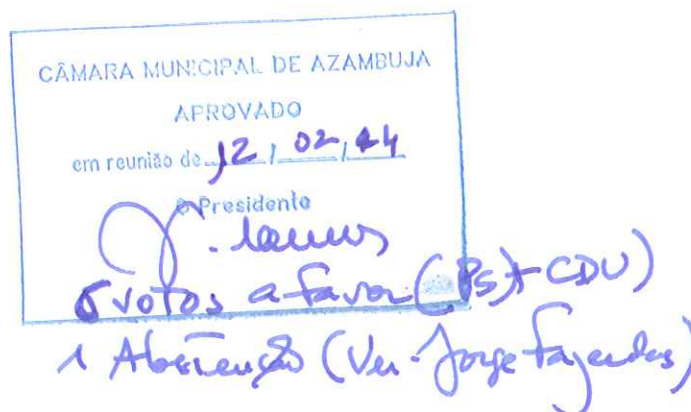 CÂMARA MUNICIPAL DE AZAMBUJA
APROVADO
em reunião de 12 / 02 / 14
O Presidente
votos a favor (PS + CDU)
1 Abstenção (Ver. Jorge Fazendas)